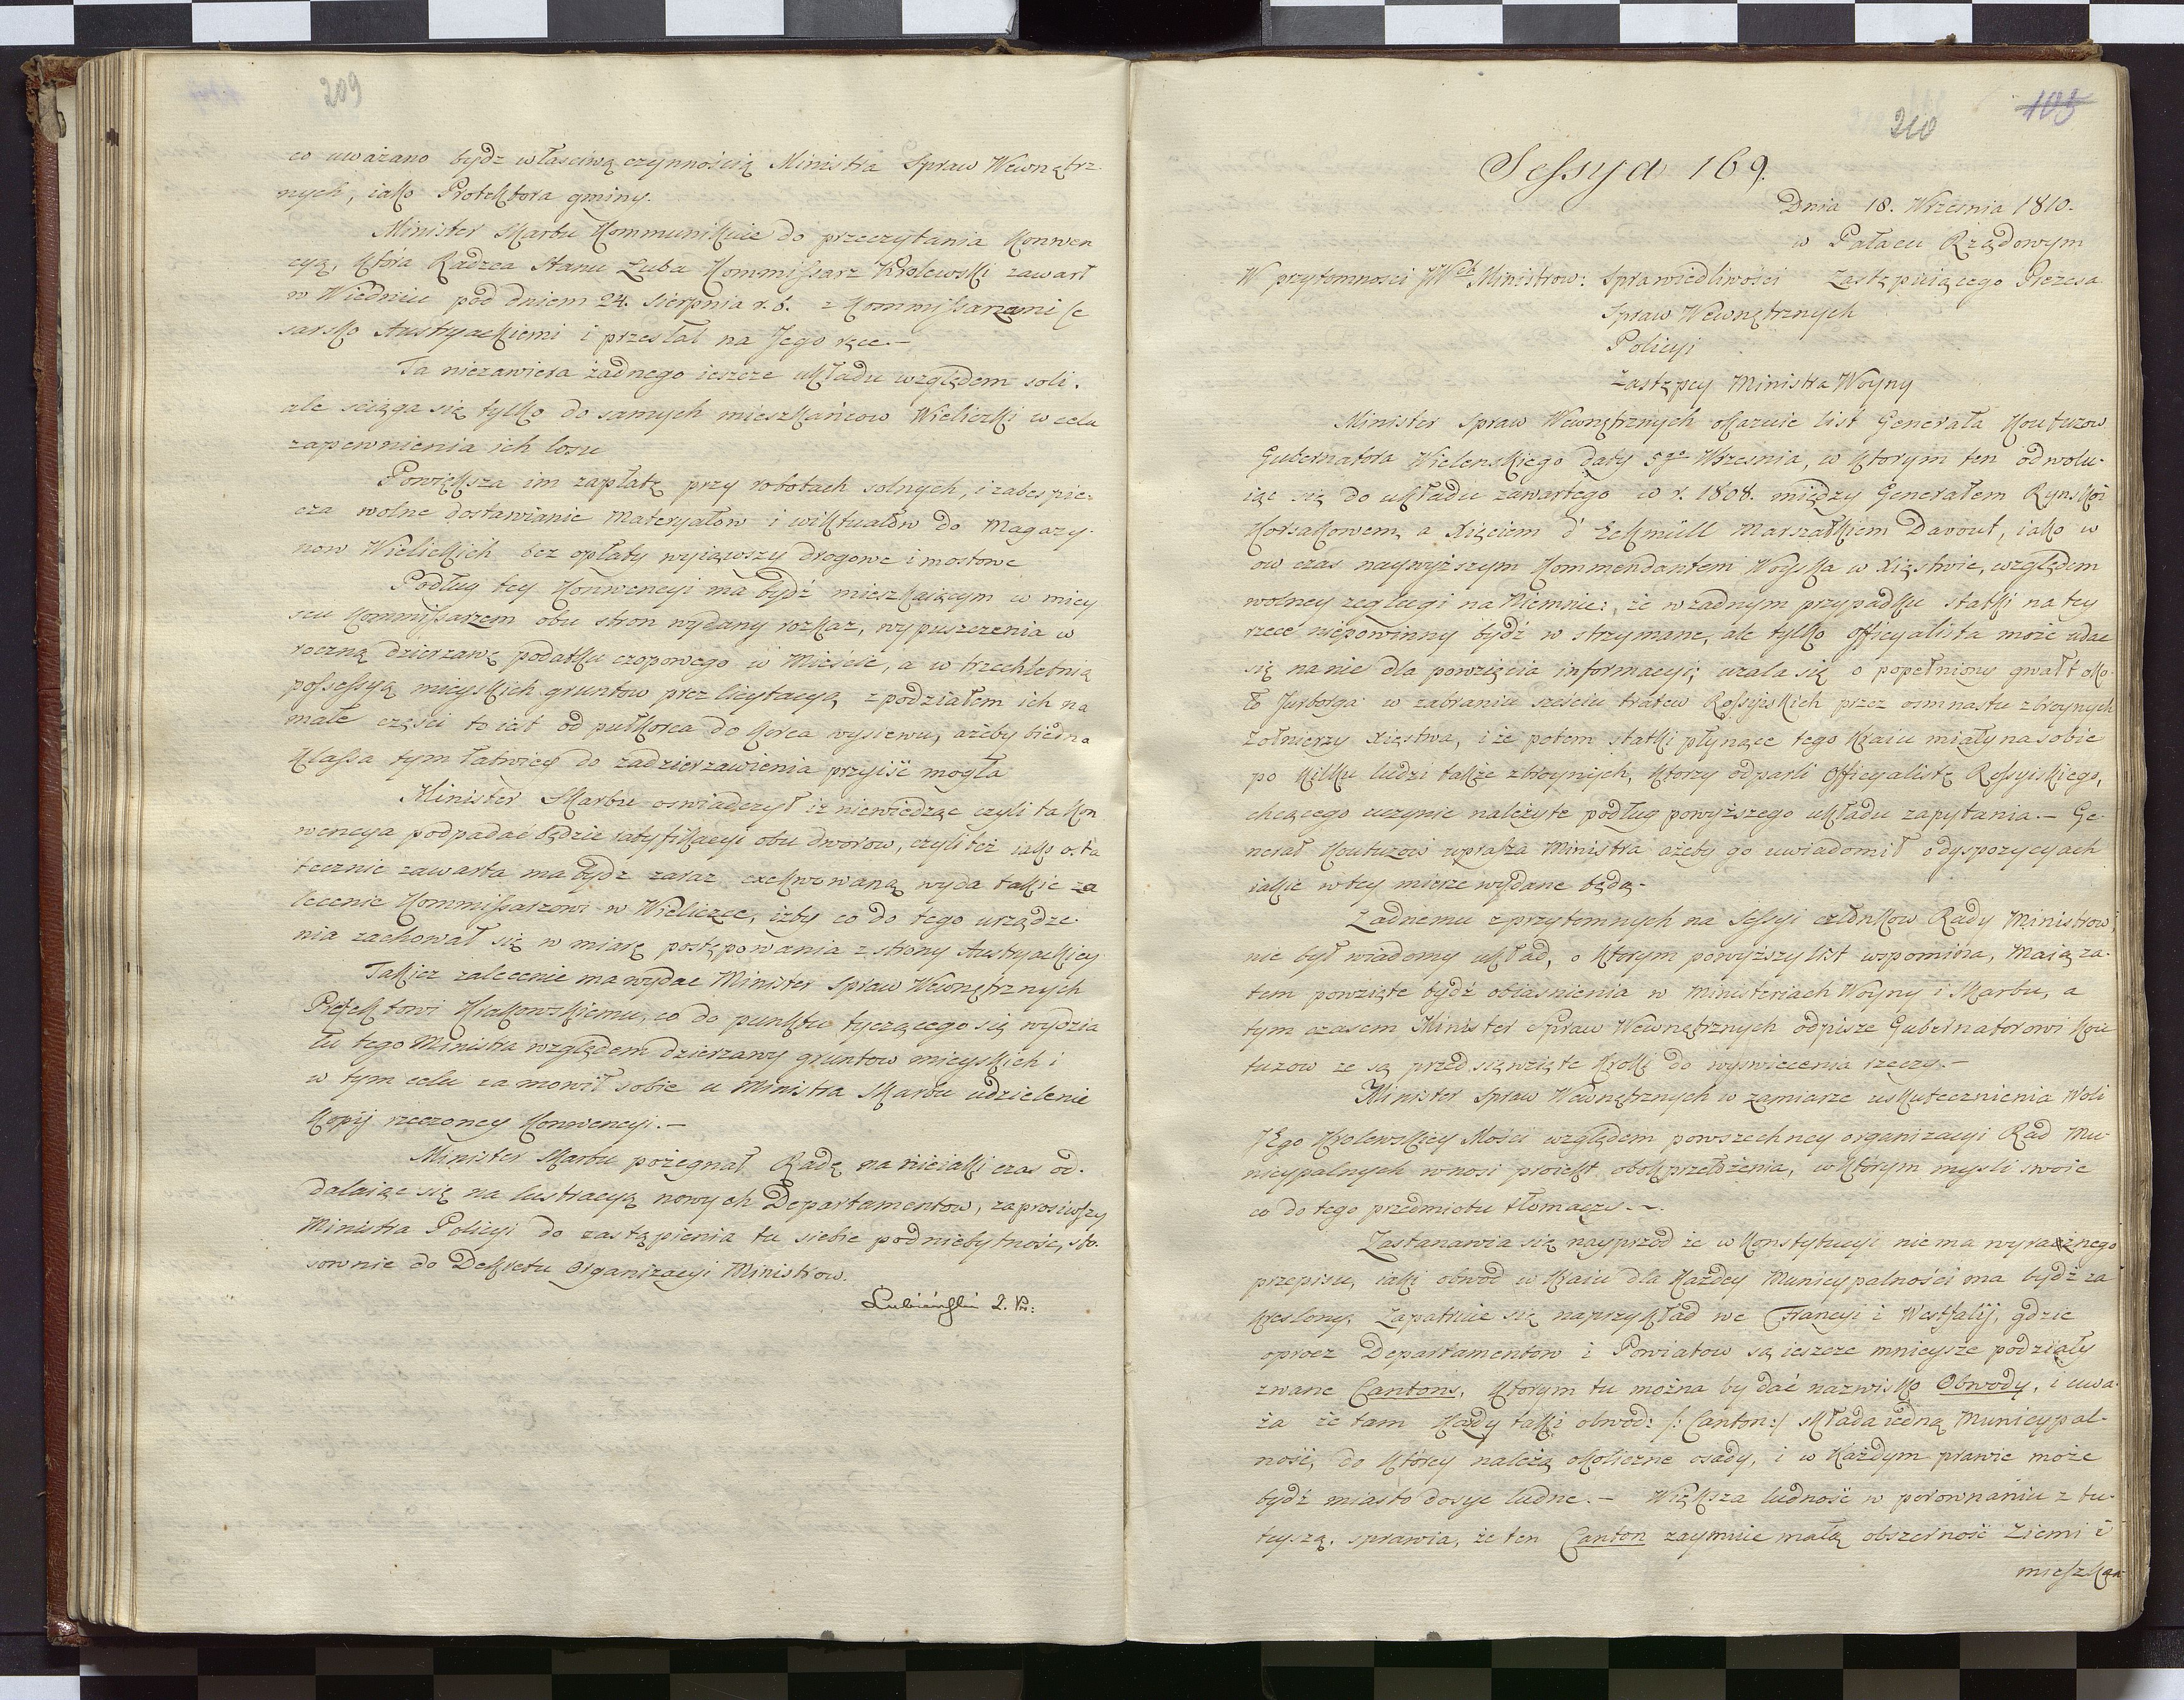 209
co uważano bydz właściwą czynnością Ministra Spraw Wewnętrz-
nych, iako Protektora gminy.
Minister Skarbu Kommunikuie do przeczytania Konwen
cyą, która Radzca Stanu Łuba Kommissarz Krolewski zawarł
w Wiedniu pod dniem 24. Sierpnia r. b. z Kommissarzami Ce
sarsko Austryackiemi i przesłał na Jego ręce.—
Ta niezawiera żadnego ieszcze układu względem soli.
ale sciąga się tylko do samych mieszkańcow Wieliczki w celu
zapewnienia ich losu
Powiększa im zapłatę przy robotach solnych, i zabespie-
cza wolne dostawianie Materyałow i wiktuałów do Magazy-
now Wielickich bez opłaty wyiąwszy drogowe i mostowe
Podług tey Konwencyi ma bydź mieszkaiącym w miey
scu Kommissarzem obu stron wydany rozkaz, wypuszczenia w
roczną dzierzawę podatku czopowego w Mieście, a w trzechletnią
possessyą mieyskich gruntow prez licytacyą z podziałem ich na
małe części to iest od pułkorca do Korca wysiewu, ażeby biedna
Klassa tym łatwiey do zadzierzawienia przyiść mogła
Minister Skarbu oswiadczył iz niewiedząc czyli ta Kon
wencya podpadać będzie ratyfikacyi obu dworow, czyli też iako osta
tecznie zawarta ma bydz zaraz exekwowaną wyda takie za
lecenie Kommissarzowi w Wieliczce, izby co do tego urządze-
nia zachował się w miarę postępowania z strony Austryackiey
Takież zalecenie ma wydac Minister Spraw Wewnętrznych
Prefektowi Krakowskiemu, co do punktu tyczącego się wydzia
łu tego Ministra względem dzierzawy gruntow mieyskich i
w tym celu zamowił sobie u Ministra Skarbu udzielenie
Kopij rzeczoney Konwencyi.—
Minister Skarbu pożegnał Radę na nieiaki czas od-
dalaiąc się na lustracyą nowych Departamentow, zaprosiwszy
Ministra Policyi do zastąpienia tu siebie pod niebytność, sto-
sownie do Dekretu Organizacyi Ministrow.
Łubieński
210
105
Sessya 169.
Dnia 18. Września 1810.
w Pałacu Rządowym
W przytomnosci JWch Ministrow: Sprawiedliwości Zastępuiącego Prezesa
Spraw Wewnętrznych
Policyi
Zastępcy Ministra Woyny
Minister Spraw Wewnętrznych okazuie list Generała Koutuzow
Gubernatora Wielenskiego daty 5go Wrzesnia, w ktorym ten odwolu-
iąc się do układu zawartego w r. 1808. między Generałem Rynskoi
Korsakowem, a Xięciem d'Eckmüll Marszałkiem Davout, iako w
ow czas naywyższym Kommendantem Woyska w Xięstwie, względem
wolney zeglugi na Niemnie:, że w żadnym przypadku statki na tey
rzece niepowinny bydź w strzymane, ale tylko officyalista może udac
się na nie dla powzięcia informacyi; uzala się o popełniony gwałt oko-
ło Jurborga w zabraniu sześciu tratew Rossyiskich przez osmnastu zbroynych
Żołnierzy Xięstwa, i że potem statki płynące tego Kraiu miały na sobie
po kilku ludzi także zbroynych, ktorzy odparli Officyalistę Rossyiskiego,
chcącego uczynic należyte podług powyższego układu zapytania.— Ge-
nerał Koutuzow uprasza Ministra ażeby go uwiadomił o dyspozycyach
iakie w tey mierze wydane będą.
Żadnemu z przytomnych na Sessyi członkow Rady Ministrow
nie był wiadomy układ, o ktorym powyższy list wspomina, Maią za-
tem powzięte bydź obiasnienia w Ministeriach Woyny i Skarbu, a
tym czasem Minister Spraw Wewnętrznych odpisze Gubernatorowi Kou
tuzow ze są przed sięwzięte kroki do wyswiecenia rzeczy.—
Minister Spraw Wewnętrznych w zamiarze uskutecznienia Woli
JEgo Krolewskiey Mości względem powszechney organizacyi Rad Mu-
nicypalnych wnosi proiekt obok przełożenia, w którym mysli swoie
co do tego przedmiotu tłomaczy.—
Zastanawia się nayprzod że w Konstytucyi niema wyraźnego
przepisu, iaki obwod w Kraiu dla Każdey Municypalności ma bydź za
kreslony. Zapatruie się naprzykład we Francyi i Westfalij, gdzie
oprocz Departamentow i Powiatow są ieszcze mnieysze podziały
zwane Cantons, Ktorym tu można by dać nazwisko Obwody, i uwa-
ża że tam Każdy taki obwod: /: Canton:/ składa iedną Municypal-
ność, do ktorey należą okoliczne osady, i w Każdym prawie może
bydź miasto dosyc ludne.— Większa ludność w porownaniu z tu-
teyszą, sprawia, że ten Canton zaymuie małą obszerność Ziemi i
mieszkań